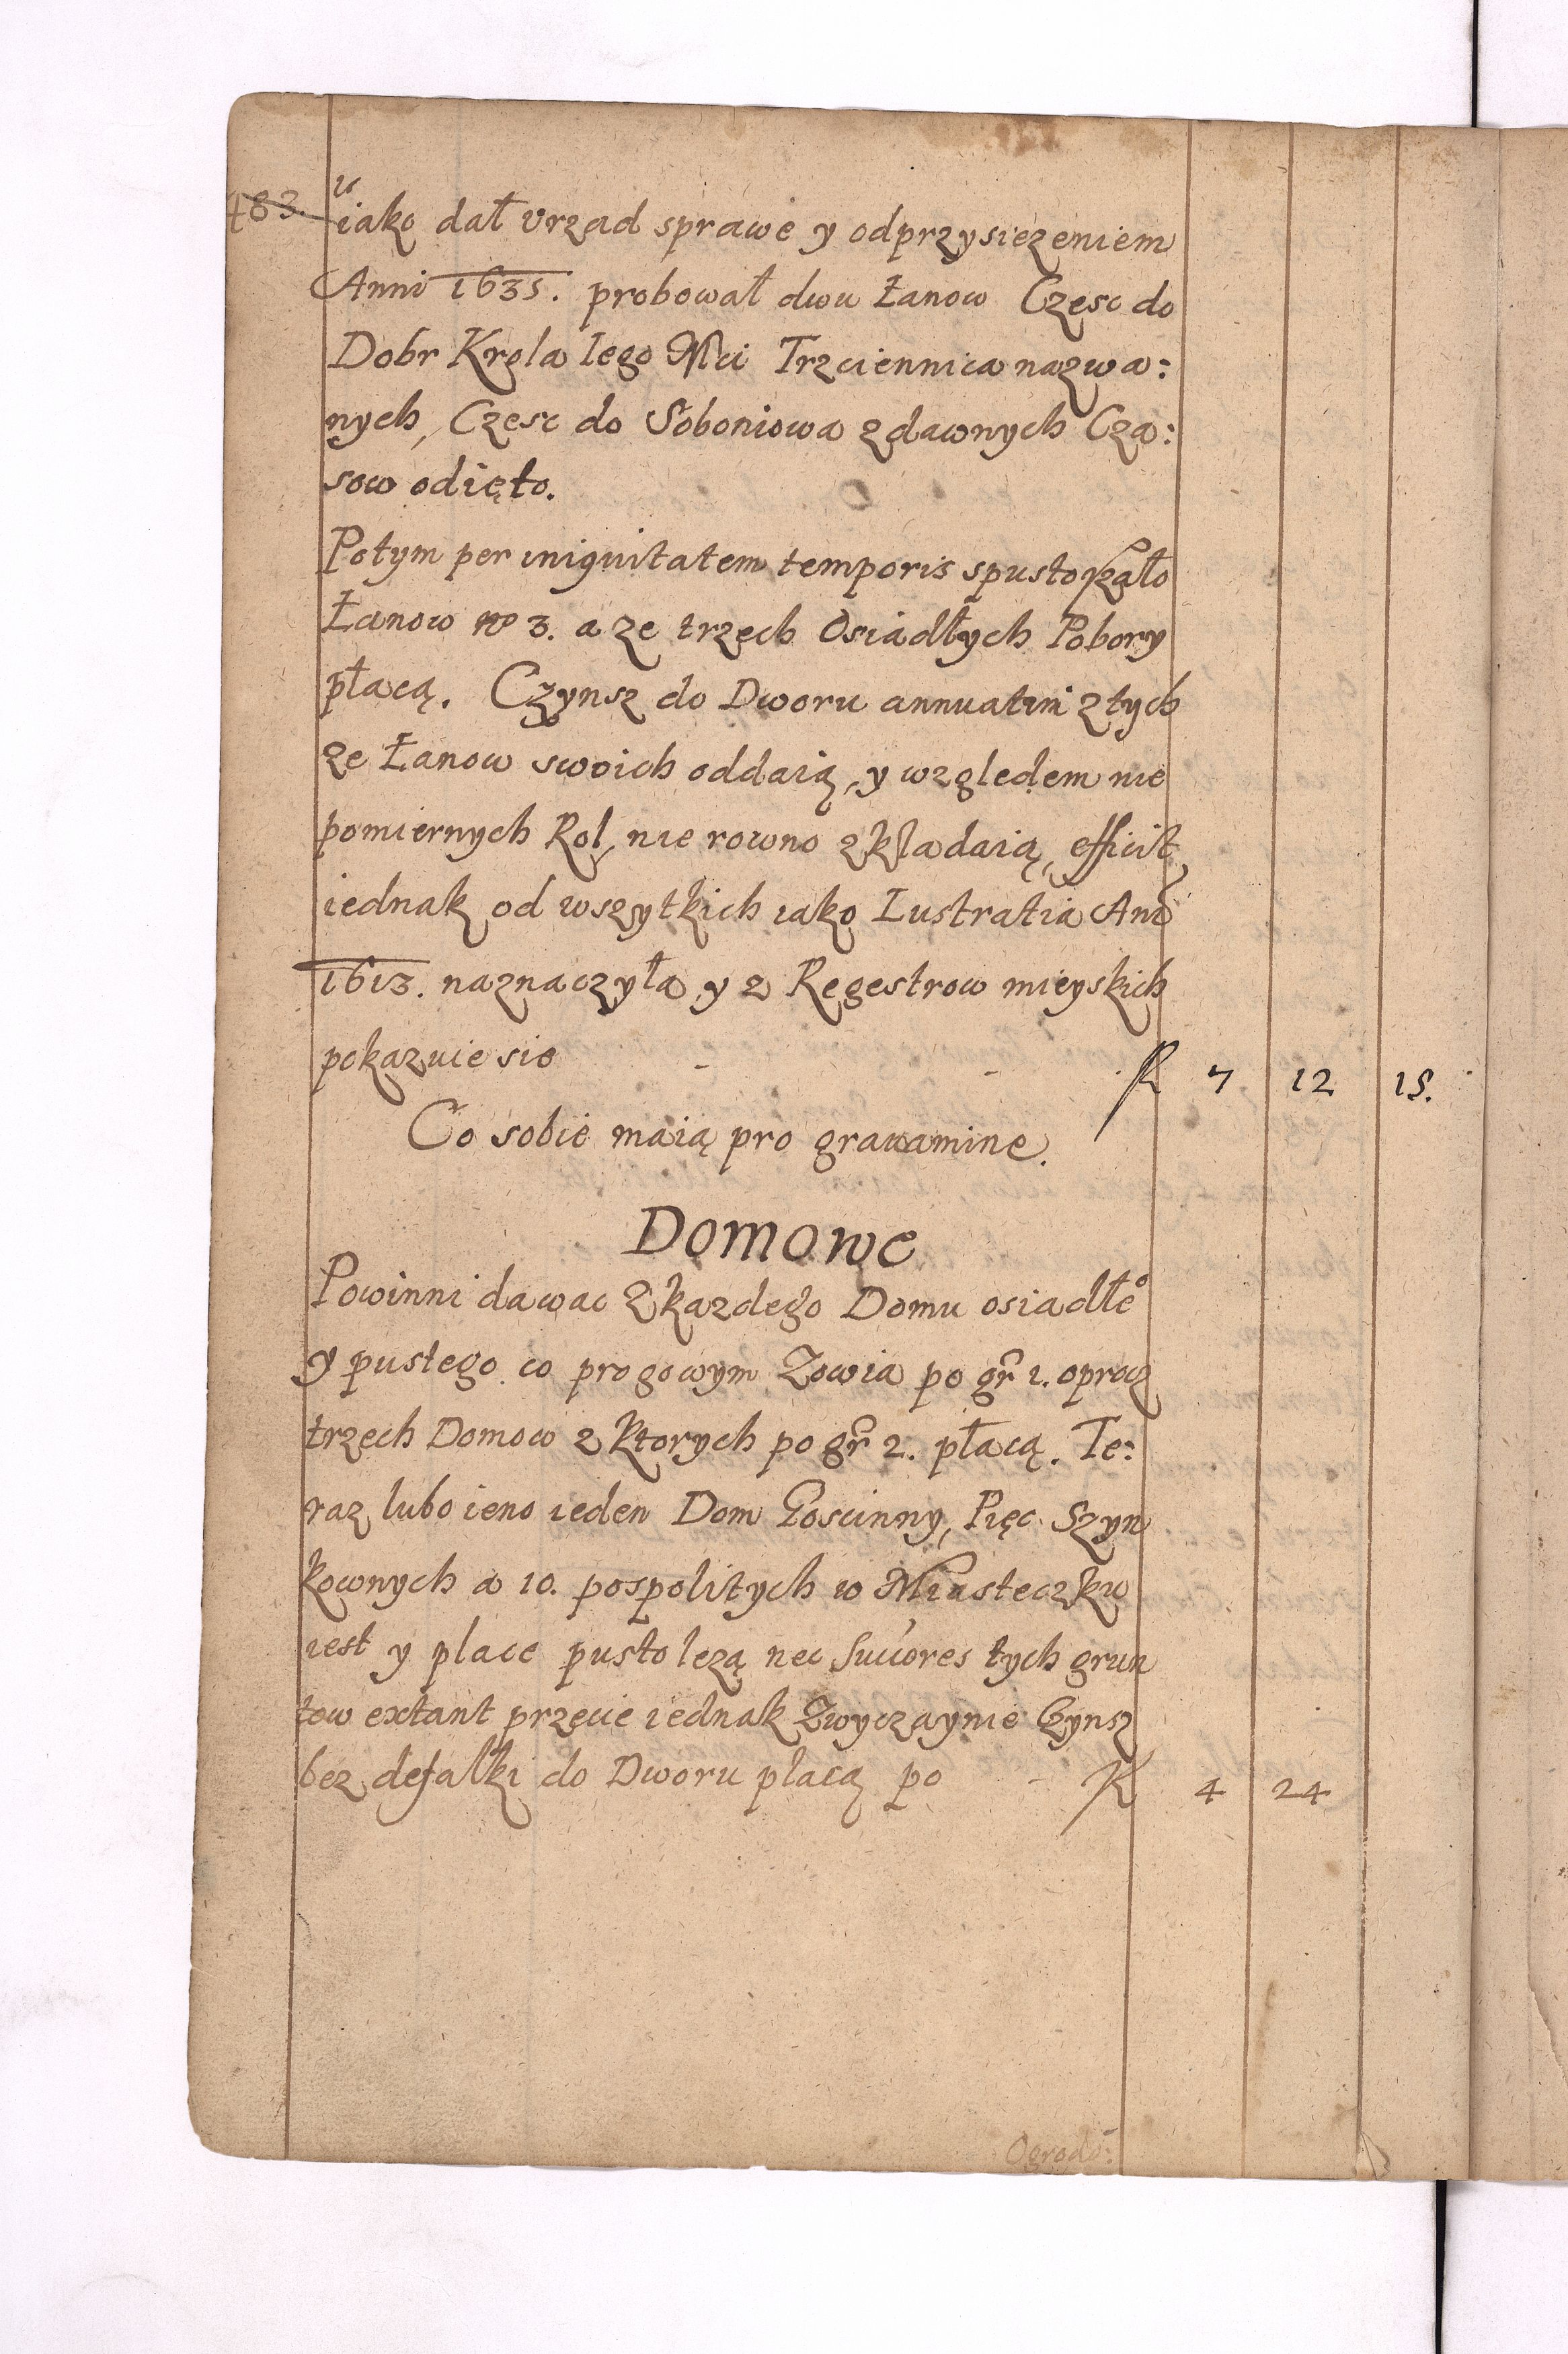 483.
iako dał vrzad sprawe y odprzysiezeniem
Anni 1635. probował dwu Łanow Czesc do
Dobr Krola Iego Mci Trzciennica nazwa:
nych, Czesc do Soboniowa zdawnych Cza:
sow odięto.
Potym per iniquitatem temporis spustoszało
Łanow no 3. a ze trzech Osiadłych Pobory
płacą. Czynsz do Dworu annuatim ztych
ze Łanow swoich oddaią, y wzgledem nie
pomiernych Rol, nie rowno zkładaią, efficit
iednak od wszytkich iako Lustratia Ani
1613. naznaczyła y z Regestrow mieyskich
pokazuie sie - - . R 7 12 15.
Co sobie maią pro grauamine.
Domowe
Powinni dawac zkazdego Domu osiadłeo
y pustego co progowym Zowia po gr 1. oprocz
trzech Domow z ktorych po gr 2. płacą. Te:
raz lubo ieno ieden Dom Goscinny, Pięc Szyn
kownych a 10. pospolitych w Miasteczku
iest y place pusto lezą nec Succores tych grun
tow extant przecie iednak Zwyczaynie Czynsz
bez defalki do Dworu płacą po - R 4 24
Ogrodo: